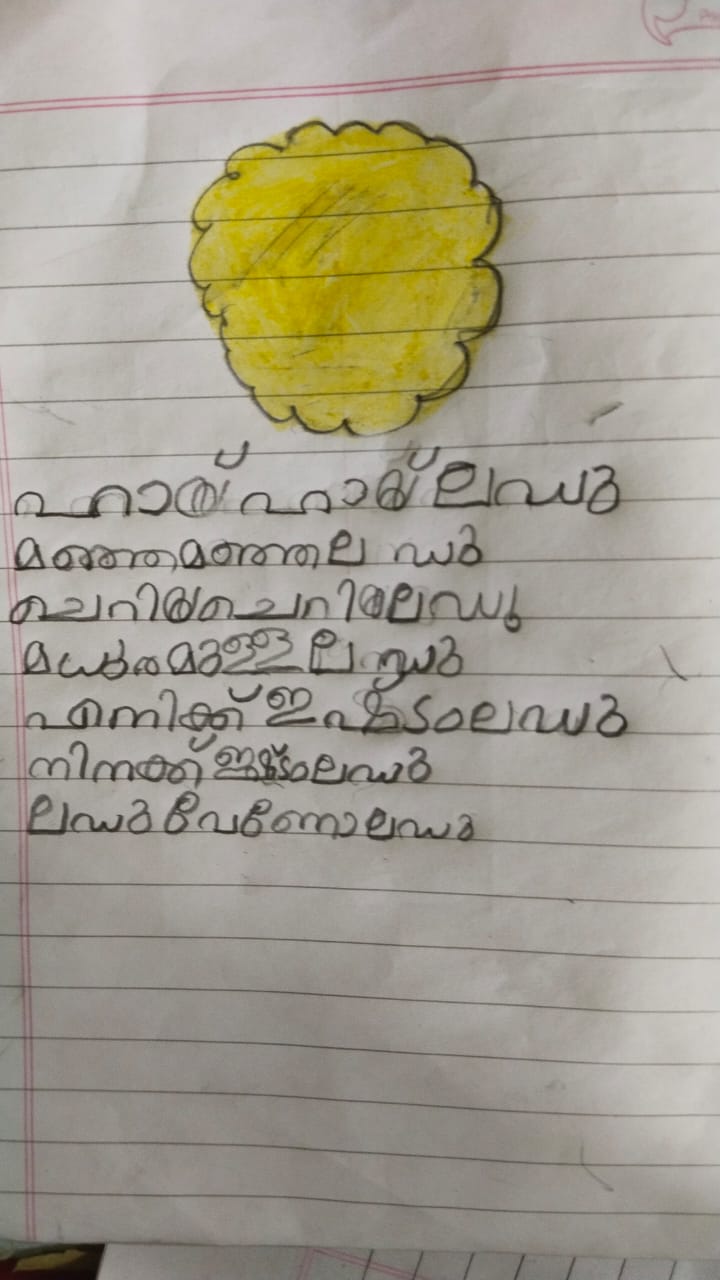 ഹായ് ഹായ് ലഡു
മഞ്ഞമഞ്ഞ ലഡു
ചെറിയചെറിയ ലഡു
മധുരമുള്ള ലഡു
എനിക്ക് ഇഷ്ടം ലഡു
നിനക്ക് ഇഷ്ടം ലഡു
ലഡു വേണോ ലഡു